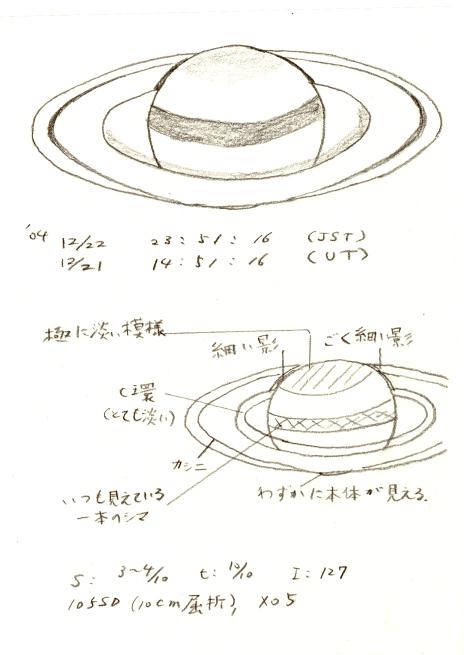 '04 12/22 23:51:16 (JST)
12/21 14:51:16 (UT)
極に淡い模様
細い影
ごく細い影
C環
(とても淡い)
カシニ
いつも見えている
一本のシマ
わずかに本体が見える.
S: 3~4/10 t: 10/10 I: 127
105SD (10cm屈折), XO5